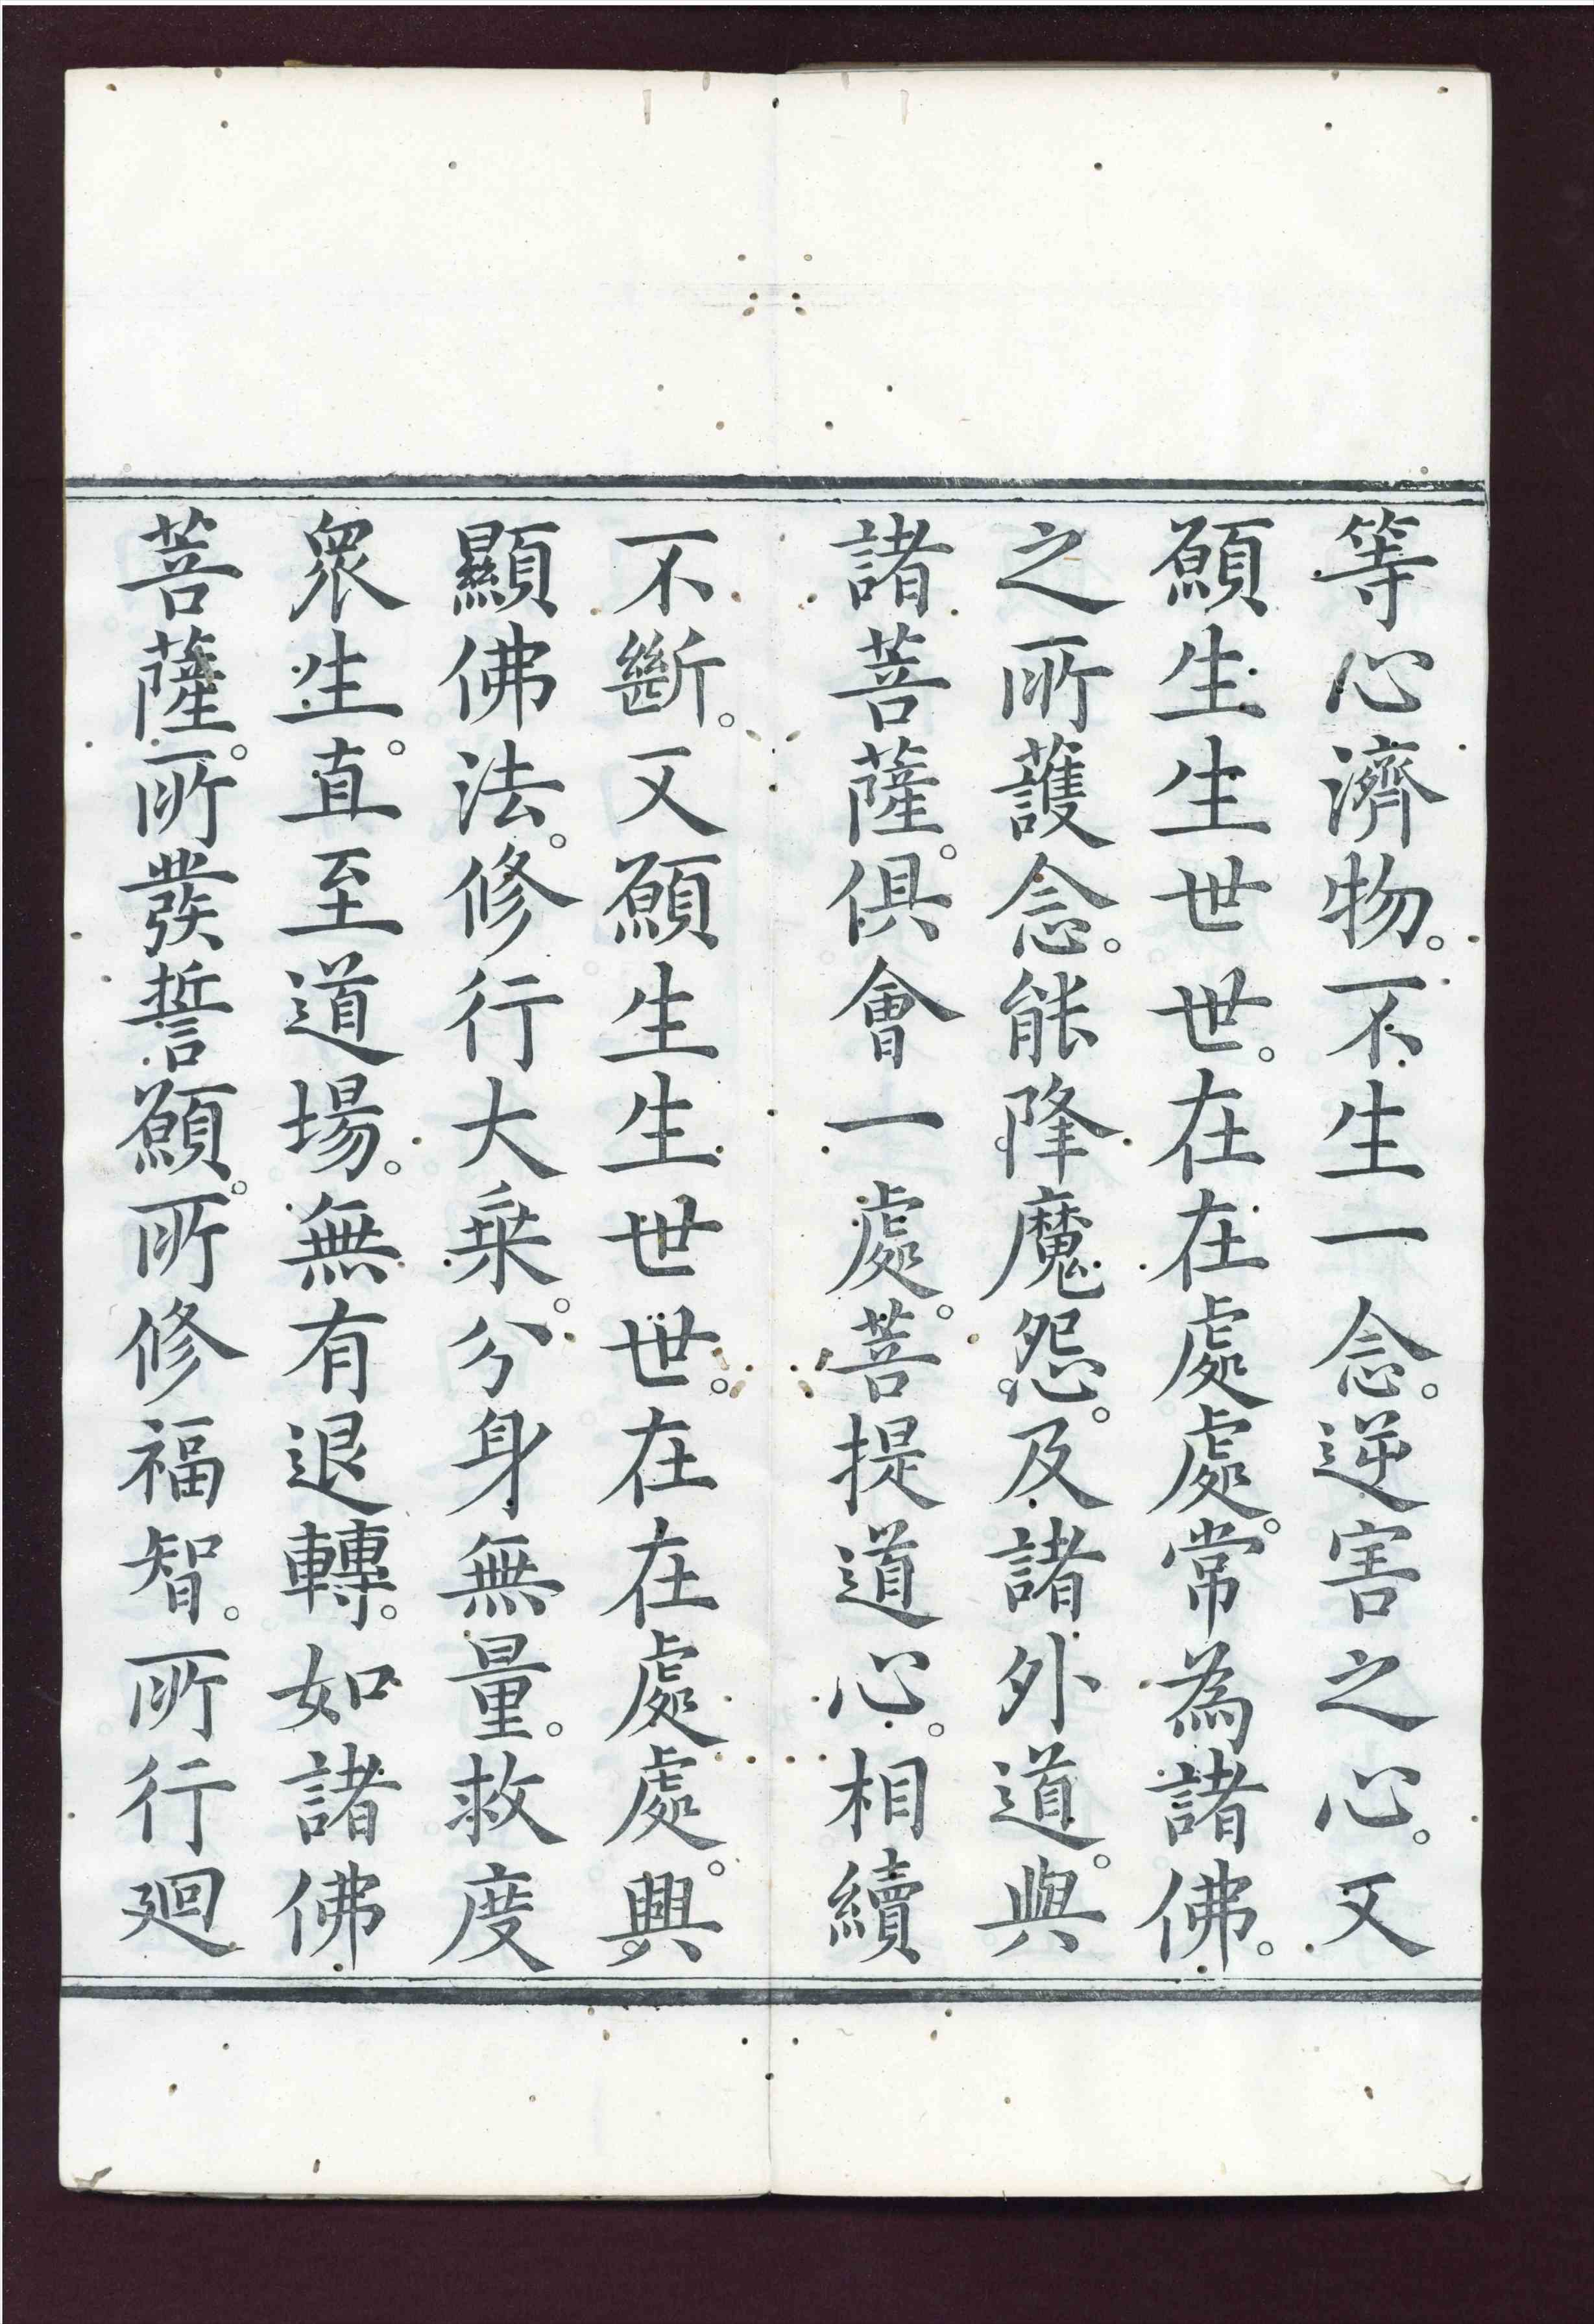 等心濟物。不生一念。逆害之心。又
願生生世世。在在處處。常為諸佛。
之所護念。能降魔怨。及諸外道。與
諸菩薩。俱會一處。菩提道心。相續
不斷。又願生生世世。在在處處。興
顯佛法。修行大乗。分身無量。救度
衆生。直至道場。無有退轉。如諸佛
菩薩。所發誓願。所修福智。所行廻